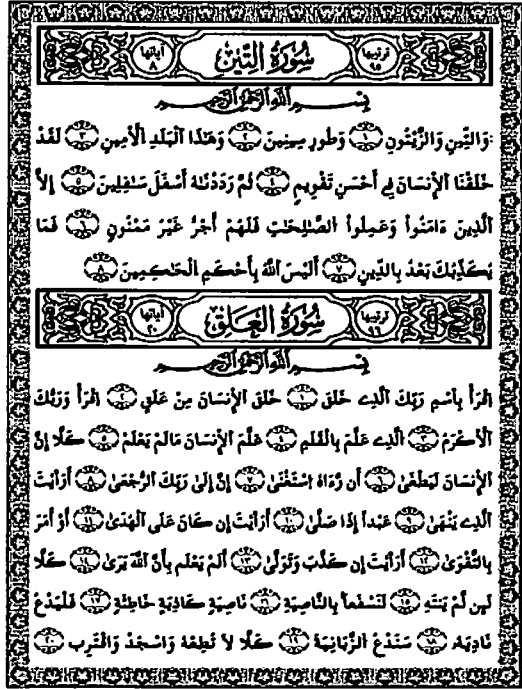 ترتيبها ٩٥ سُورَةُ التِّينِ آياتها ٨
بِسْمِ اللَّهِ الرَّحْمَٰنِ الرَّحِيمِ
وَالتِّينِ وَالزَّيْتُونِ ١ وَطُورِ سِينِينَ ٢ وَهَٰذَا اَلْبَلَدِ اِلْأَمِينِ ٣ لَقَدْ
خَلَقْنَا اَلْإِنسَانَ فِي أَحْسَنِ تَقْوِيمٍ ٤ ثُمَّ رَدَدْنَٰهُ أَسْفَلَ سَٰفِلِينَ ٥ إِلاَّ
اَلَّذِينَ ءَامَنُواْ وَعَمِلُواْ اُلصَّٰلِحَٰتِ فَلَهُمْ أَجْرٌ غَيْرُ مَمْنُونٍ ٦ فَمَا
يُكَذِّبُكَ بَعْدُ بِالدِّينِ ٧ أَلَيْسَ اَللَّهُ بِأَحْكَمِ اِلْحَٰكِمِينَ ٨
ترتيبها ٩٦ سُورَةُ الْعَلَقِ آياتها ٢٠
بِسْمِ اللَّهِ الرَّحْمَٰنِ الرَّحِيمِ
اِقْرَأْ بِاسْمِ رَبِّكَ اَلَّذِي خَلَقَ ١ خَلَقَ اَلْإِنسَانَ مِنْ عَلَقٍ ٢ اِقْرَأْ وَرَبُّكَ
اَلْأَكْرَمُ ٣ اُلَّذِي عَلَّمَ بِالْقَلَمِ ٤ عَلَّمَ اَلْإِنسَانَ مَالَمْ يَعْلَمْ ٥ كَلَّا إِنَّ
اَلْإِنسَانَ لَيَطْغَىٰ ٦ أَن رَّءَاهُ اُسْتَغْنَىٰ ٧ إِنَّ إِلَىٰ رَبِّكَ اَلرُّجْعَىٰ ٨ أَرَٰيْتَ
اَلَّذِي يَنْهَىٰ ٩ عَبْداً إِذَا صَلَّىٰ ١٠ أَرَٰيْتَ إِن كَانَ عَلَى اَلْهُدَىٰ ١١ أَوْ اَمَرَ
بِالتَّقْوَىٰ ١٢ أَرَٰيْتَ إِن كَذَّبَ وَتَوَلَّىٰ ١٣ أَلَمْ يَعْلَم بِأَنَّ اَللَّهَ يَرَىٰ ١٤ كَلَّا
لَئِن لَّمْ يَنتَهِ ١٥ لَنَسْفَعاً بِالنَّاصِيَةِ ١٦ نَاصِيَةٍ كَاذِبَةٍ خَاطِئَةٍ ١٧ فَلْيَدْعُ
نَادِيَهُ ١٨ سَنَدْعُ اُلزَّبَانِيَةَ ١٩ كَلَّا لاَ تُطِعْهُ وَاسْجُدْ وَاقْتَرِب ٢٠